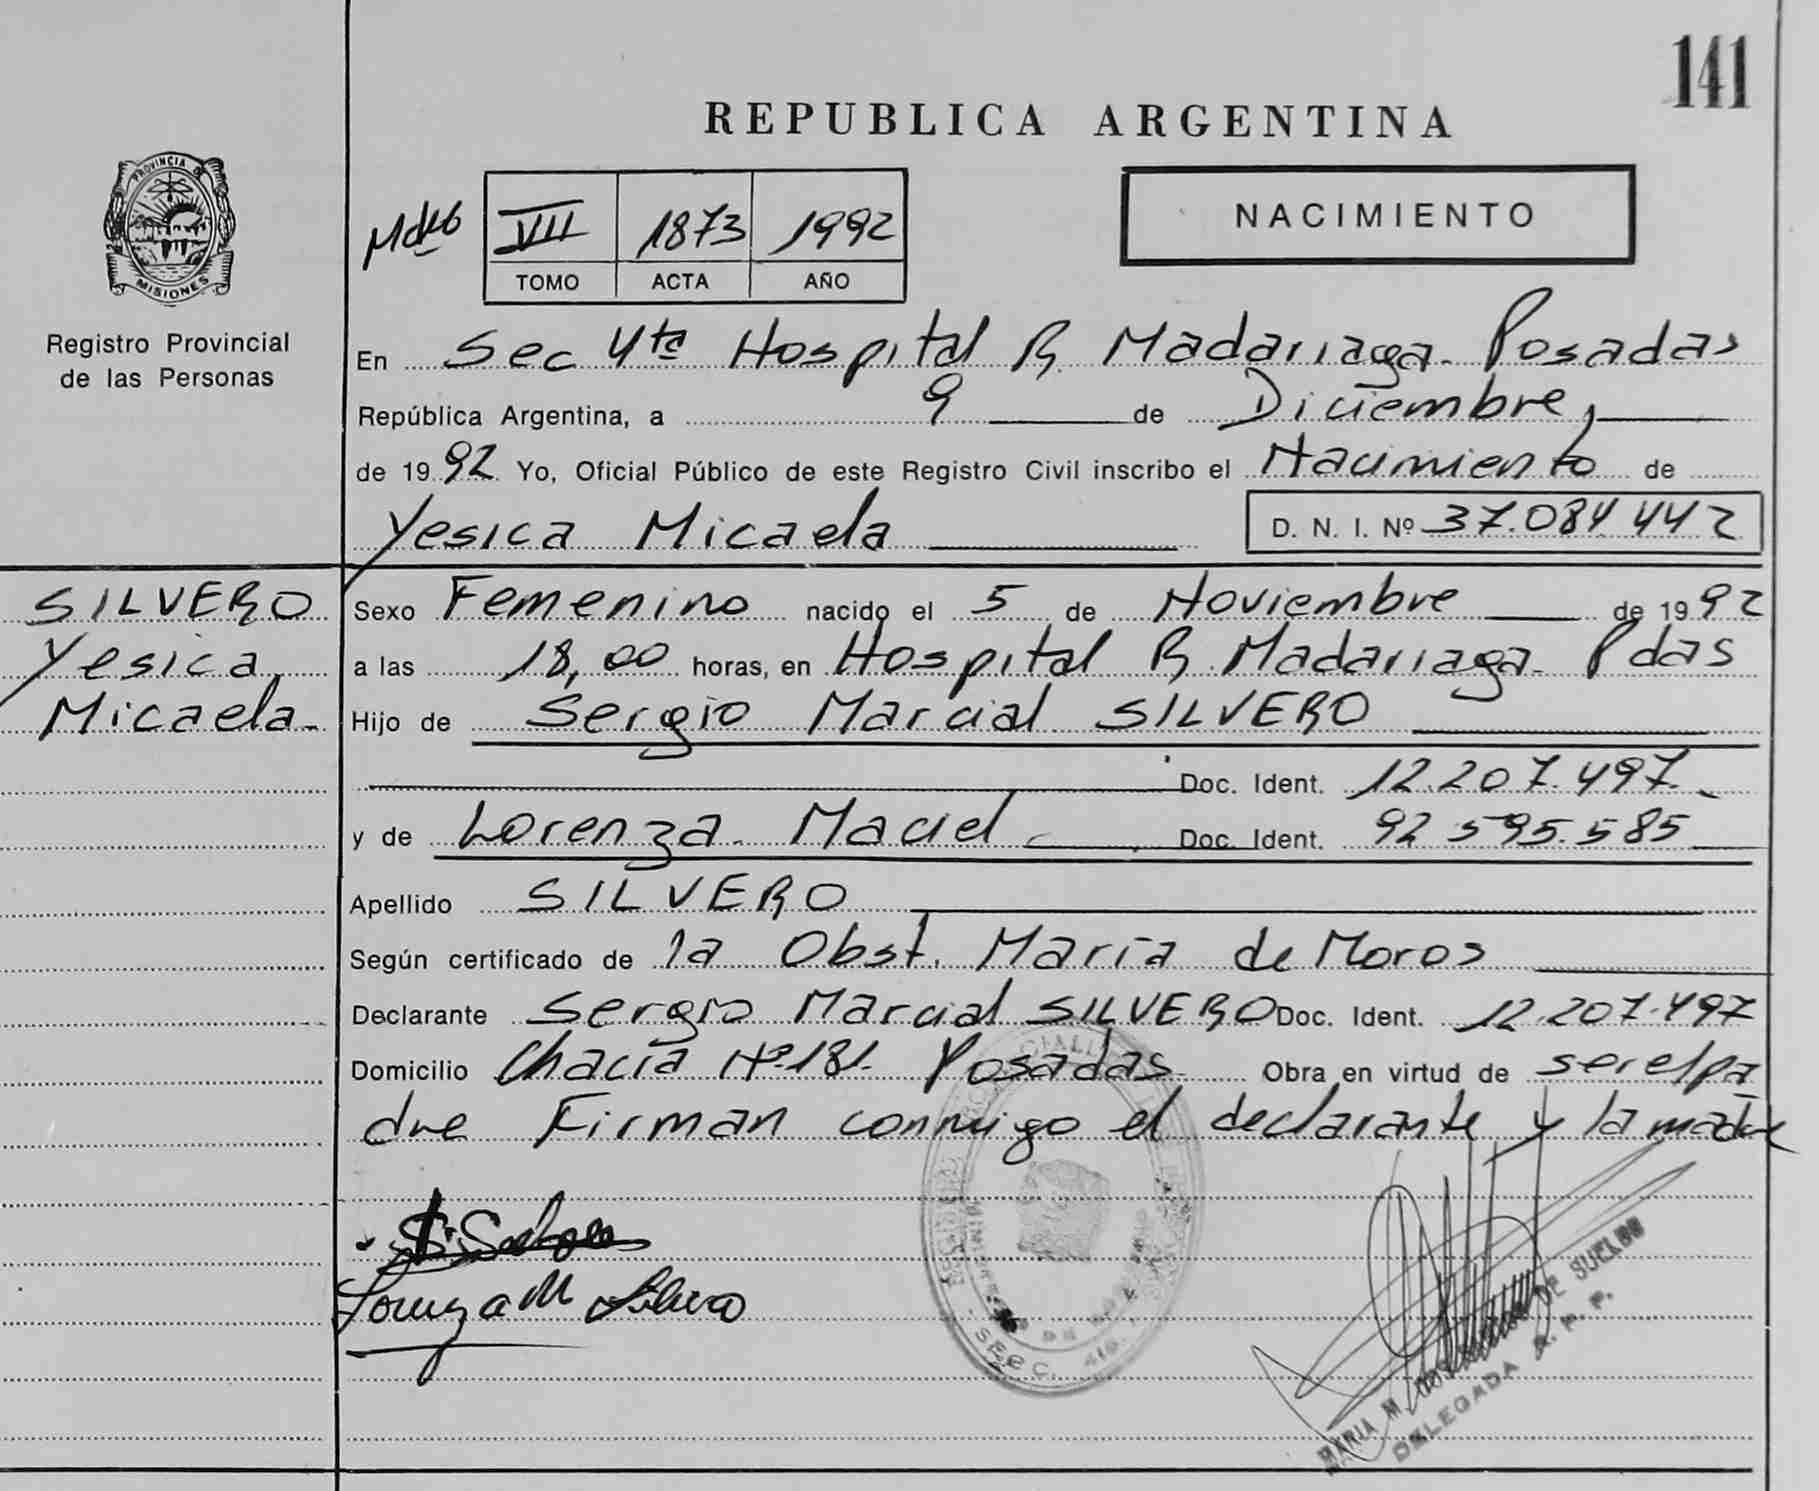 141
REPUBLICA ARGENTINA
PROVINCIA DE
MISIONES
Registro Provincial
de las Personas
VII 1873 1992
TOMO ACTA AÑO
NACIMIENTO
En Sec 4ta Hospital R. Madariaga - Posadas
República Argentina, a 9 de Diciembre,
de 1992 Yo, Oficial Público de este Registro Civil inscribo el Nacimiento de
Yesica Micaela D. N. I. Nº 37.084.442
SILVERO
Yesica
Micaela-
Sexo Femenino nacido el 5 de Noviembre de 1992
a las 18,00 horas, en Hospital R. Madariaga - Pdas
Hijo de Sergio Marcial SILVERO
Doc. Ident. 12.207.497.-
y de Lorenza Maciel Doc. Ident. 92.595.585
Apellido SILVERO
Según certificado de la Obst. María de Moros
Declarante Sergio Marcial SILVERO Doc. Ident. 12.207.497
Domicilio Nº 181. Posadas Obra en virtud de ser el pa
dre Firman conmigo el declarante y la madre
SECC. 4ta.
MARIA M. DE SUELDO
DELEGADA R. P. P.